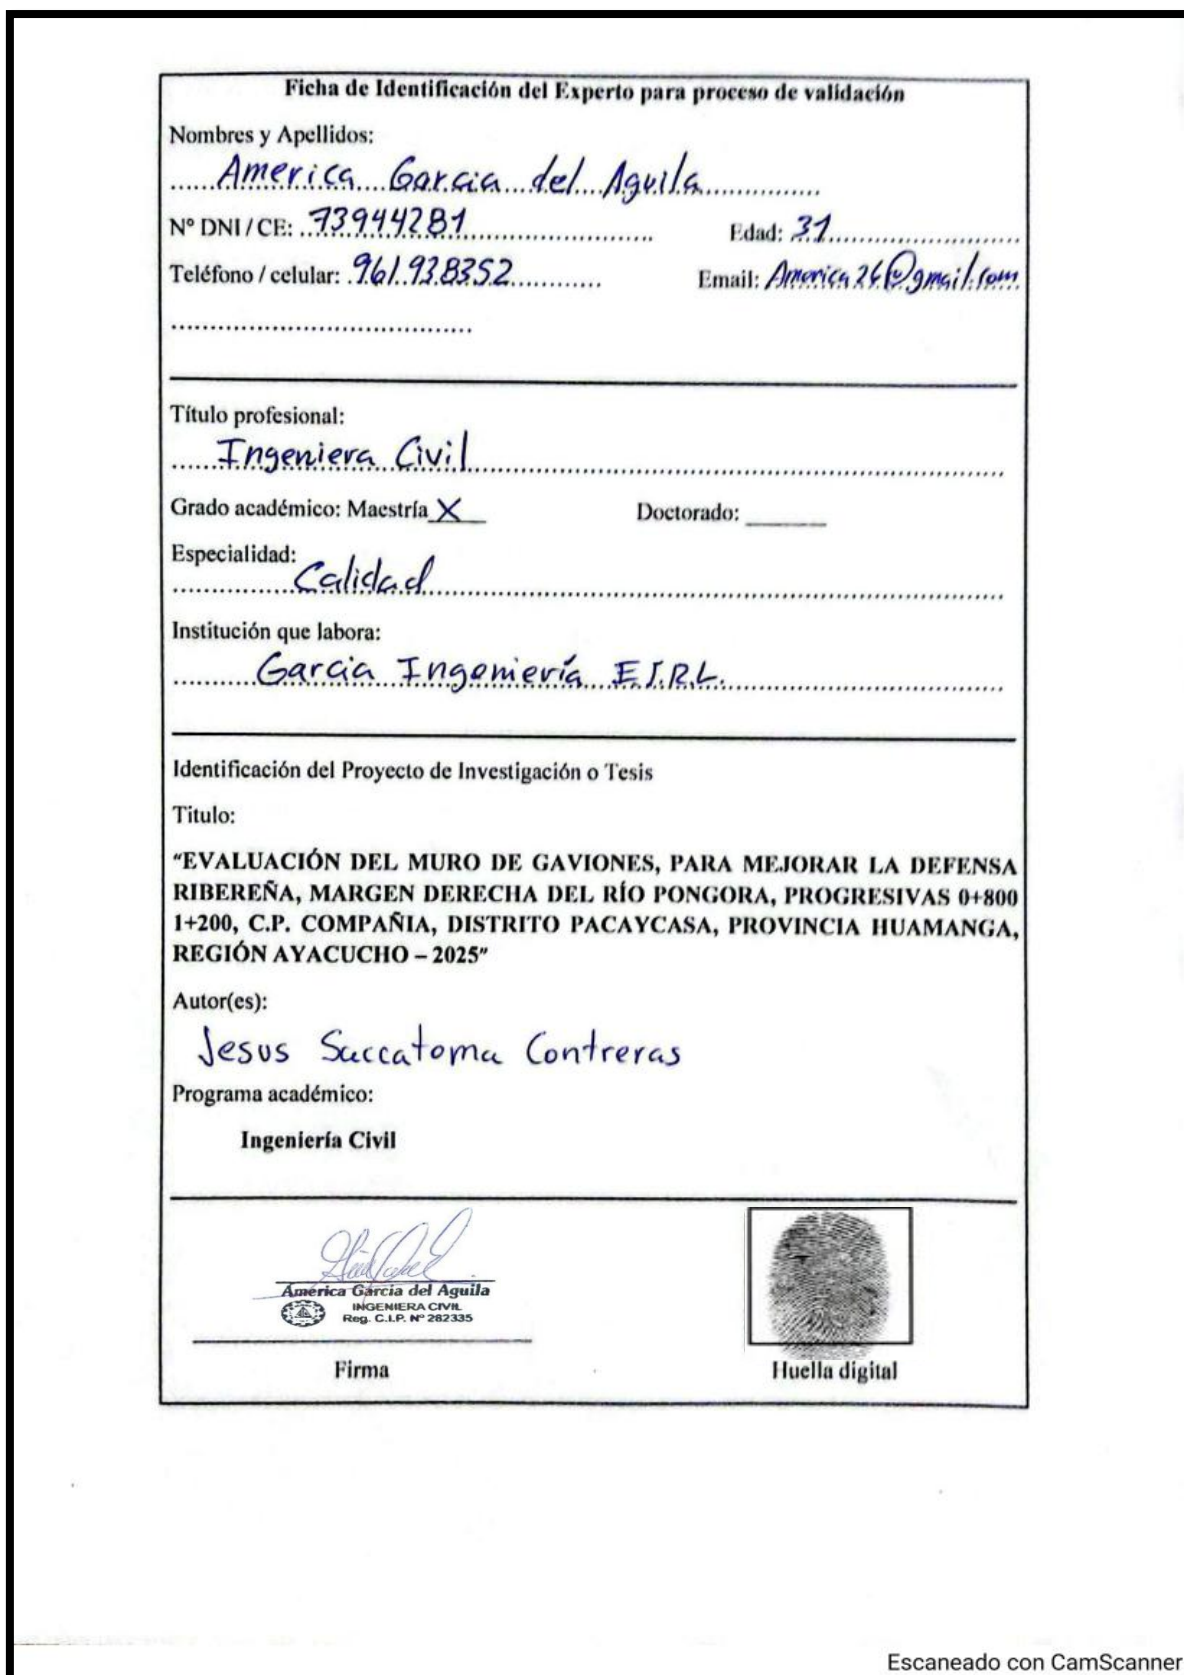 Ficha de Identificación del Experto para proceso de validación
Nombres y Apellidos:
America Garcia del Aguila
Nº DNI / CE: 73944281 Edad: 31
Teléfono / celular: 961938352 Email: America26@gmail.com
Título profesional:
Ingeniera Civil
Grado académico: Maestría X Doctorado:
Especialidad:
Calidad
Institución que labora:
Garcia Ingeniería E.I.R.L.
Identificación del Proyecto de Investigación o Tesis
Titulo:
"EVALUACIÓN DEL MURO DE GAVIONES, PARA MEJORAR LA DEFENSA
RIBEREÑA, MARGEN DERECHA DEL RÍO PONGORA, PROGRESIVAS 0+800
1+200, C.P. COMPAÑIA, DISTRITO PACAYCASA, PROVINCIA HUAMANGA,
REGIÓN AYACUCHO – 2025"
Autor(es):
Jesus Saccatoma Contreras
Programa académico:
Ingeniería Civil
America Garcia del Aguila
INGENIERA CIVIL
Reg. C.I.P. Nº 282335
Firma Huella digital
Escaneado con CamScanner